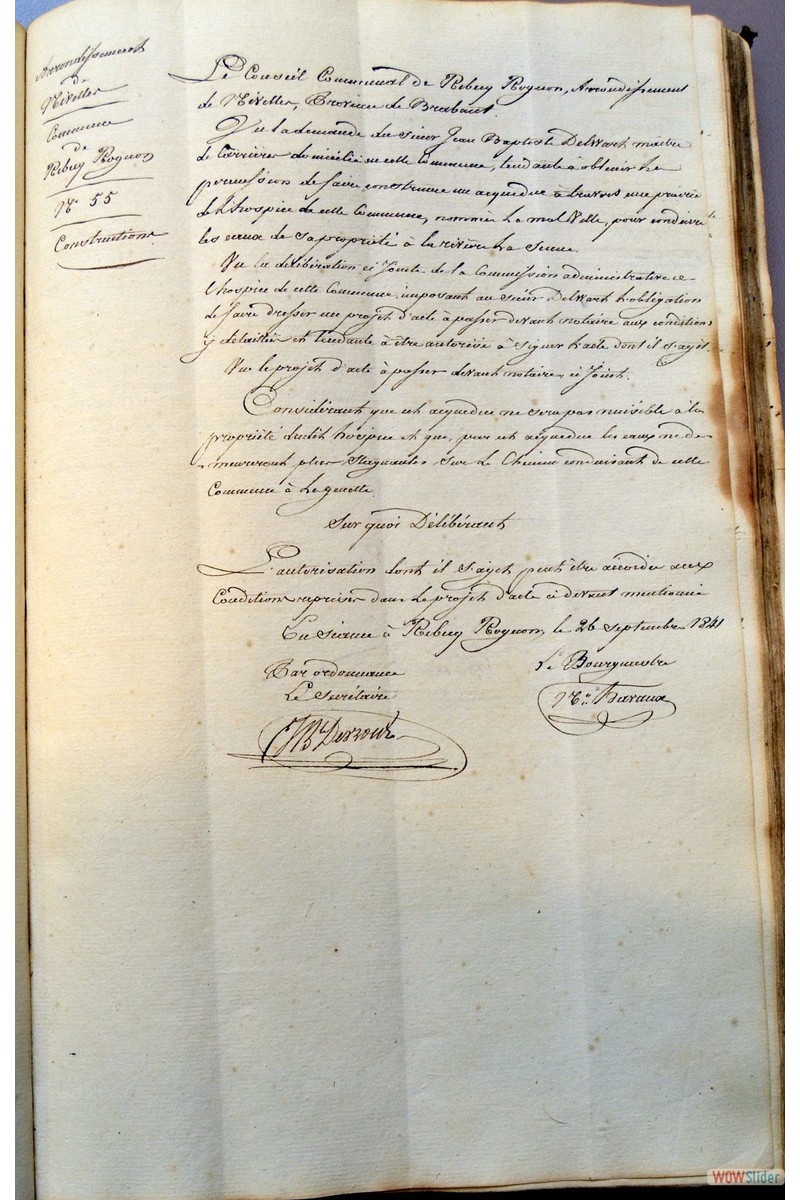 Arrondissement
de
Nivelles
Commune
de
Rebecq Rognon
N° 55
Constructions
Le Conseil Communal de Rebecq Rognon, Arrondissement
de Nivelles, Province de Brabant
Vu la demande du sieur Jean Baptiste Delwart maître
de Carrières domicilié en cette Commune, tendante à obtenir la
permission de faire construire un acqueduc à travers une prairie
de l'hospice de cette Commune, nommée La mal Ville, pour conduire
les eaux de sa propriété à la rivière La Senne.
Vu la délibération ci Jointe de la Commission administrative de
l'hospice de cette Commune, imposant au sieur Delwart l'obligation
de faire dresser un projet d'acte à passer devant notaire aux conditions
y détaillées et tendante à être autorisée à signer l'acte dont il s'agit.
Vu le projet d'acte à passer devant notaire, ci Joint.
Considérant que cet acqueduc ne sera pas nuisible à la
propriété dudit hospice et que, par cet acqueduc les eaux ne de-
meureront plus Stagnantes Sur le Chemin conduisant de cette
Commune à La
Sur quoi Délibérant
L'autorisation dont il s'agit peut être accordée aux
Conditions reprises dans le projet d'acte ci devant mentionné
En séance à Rebecq Rognon, le 26 septembre 1841
Par ordonnance
Le Secrétaire
Le Bourgmestre
WOWSlider